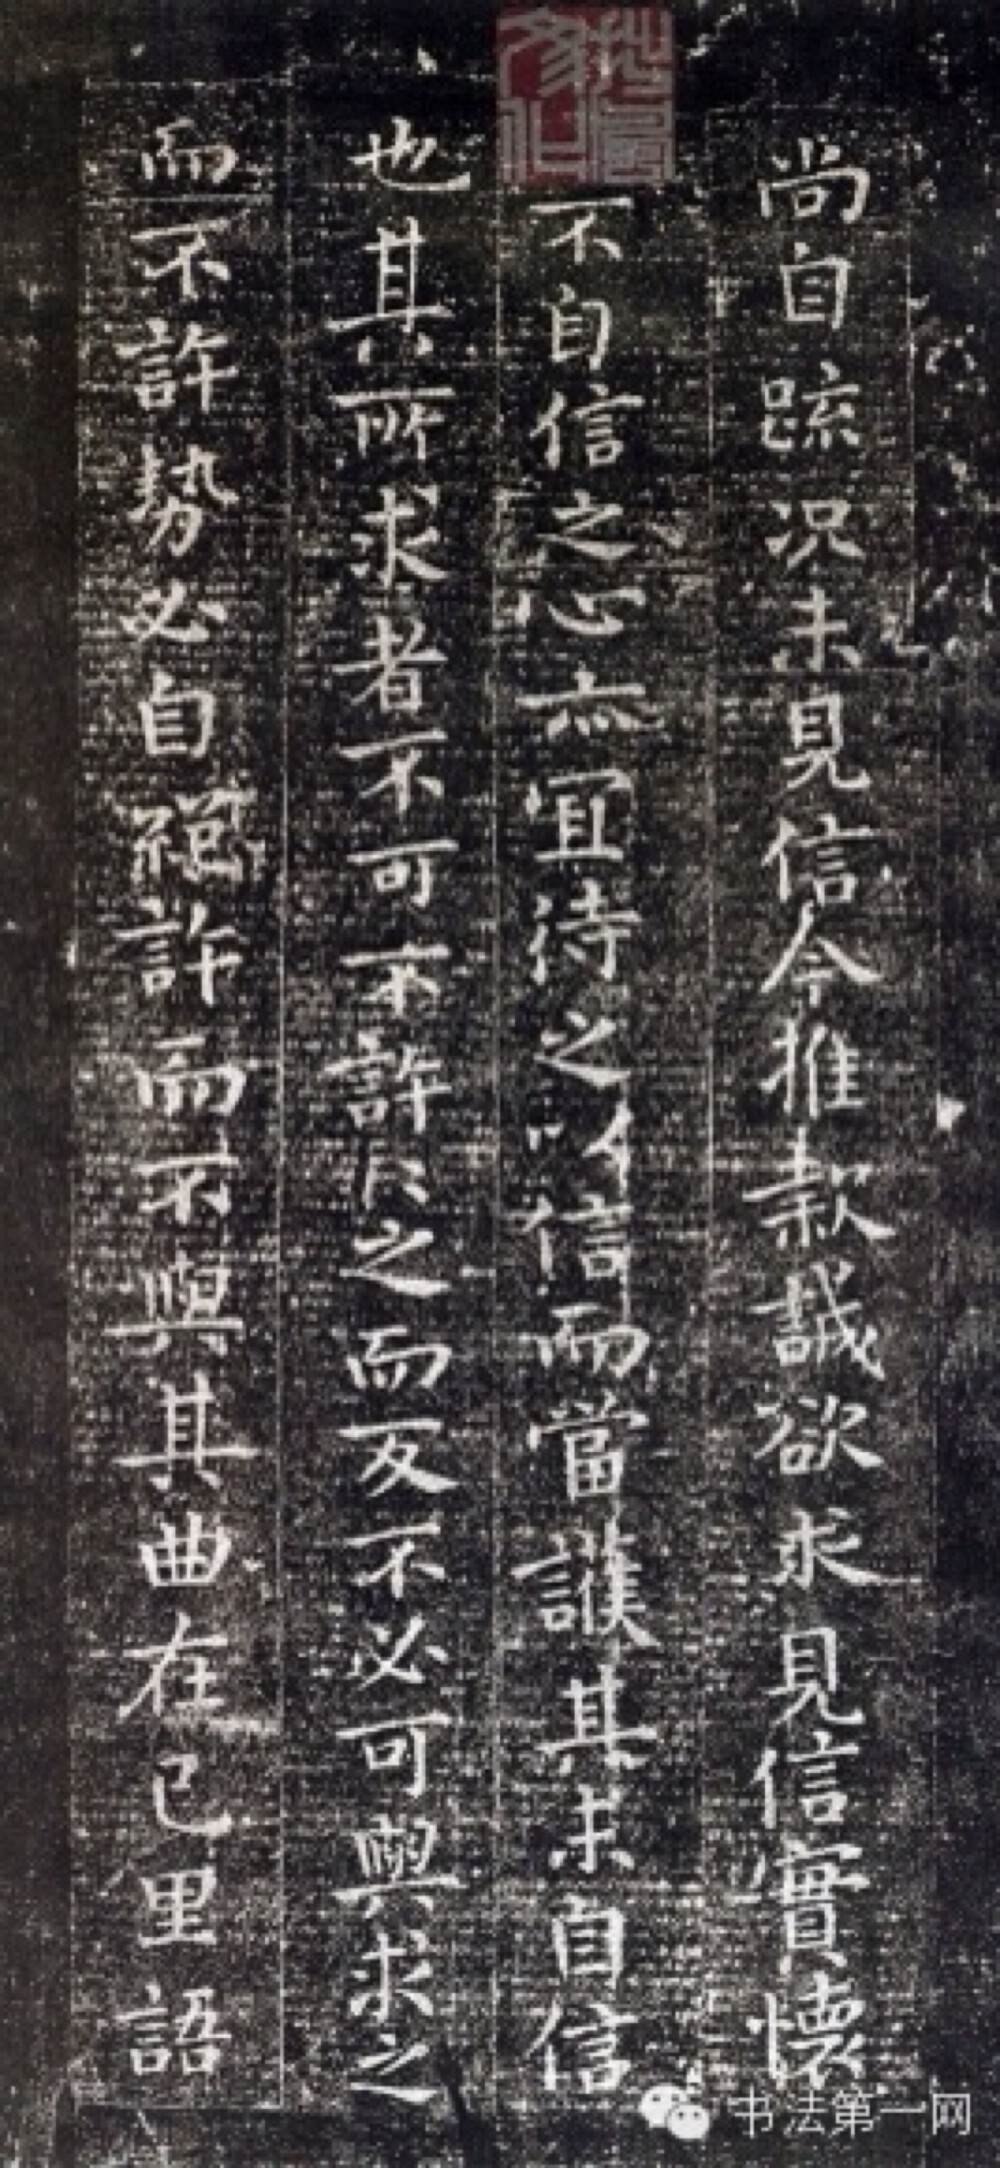 尚自疏况未見信今推款誠欲求見信實懷
不自信之心亦宜待之以信而當護其未自信
也其所求者不可不許許之而反不必可與求之
而不許勢必自絕許而不與其曲在己里語
书法第一网